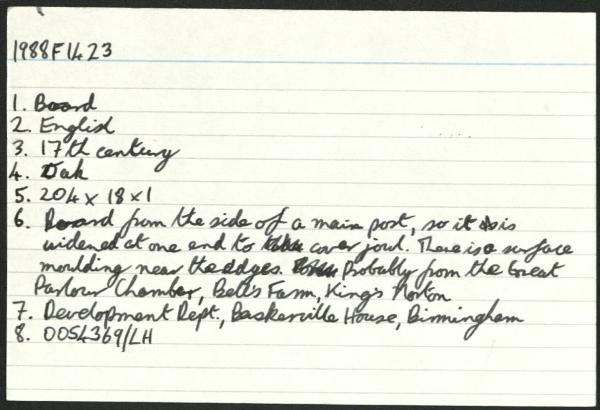 1988F1423
1. Board
2. English
3. 17th century
4. Oak
5. 204 x 18 x 1
6. Board from the side of a main post, so it is
widened at one end to cover jowl. There is a surface
moulding near the edges. Probably from the Great
Parlour Chamber, Bells Farm, King's Norton
7. Development Dept., Baskerville House, Birmingham
8. 0054369/LH